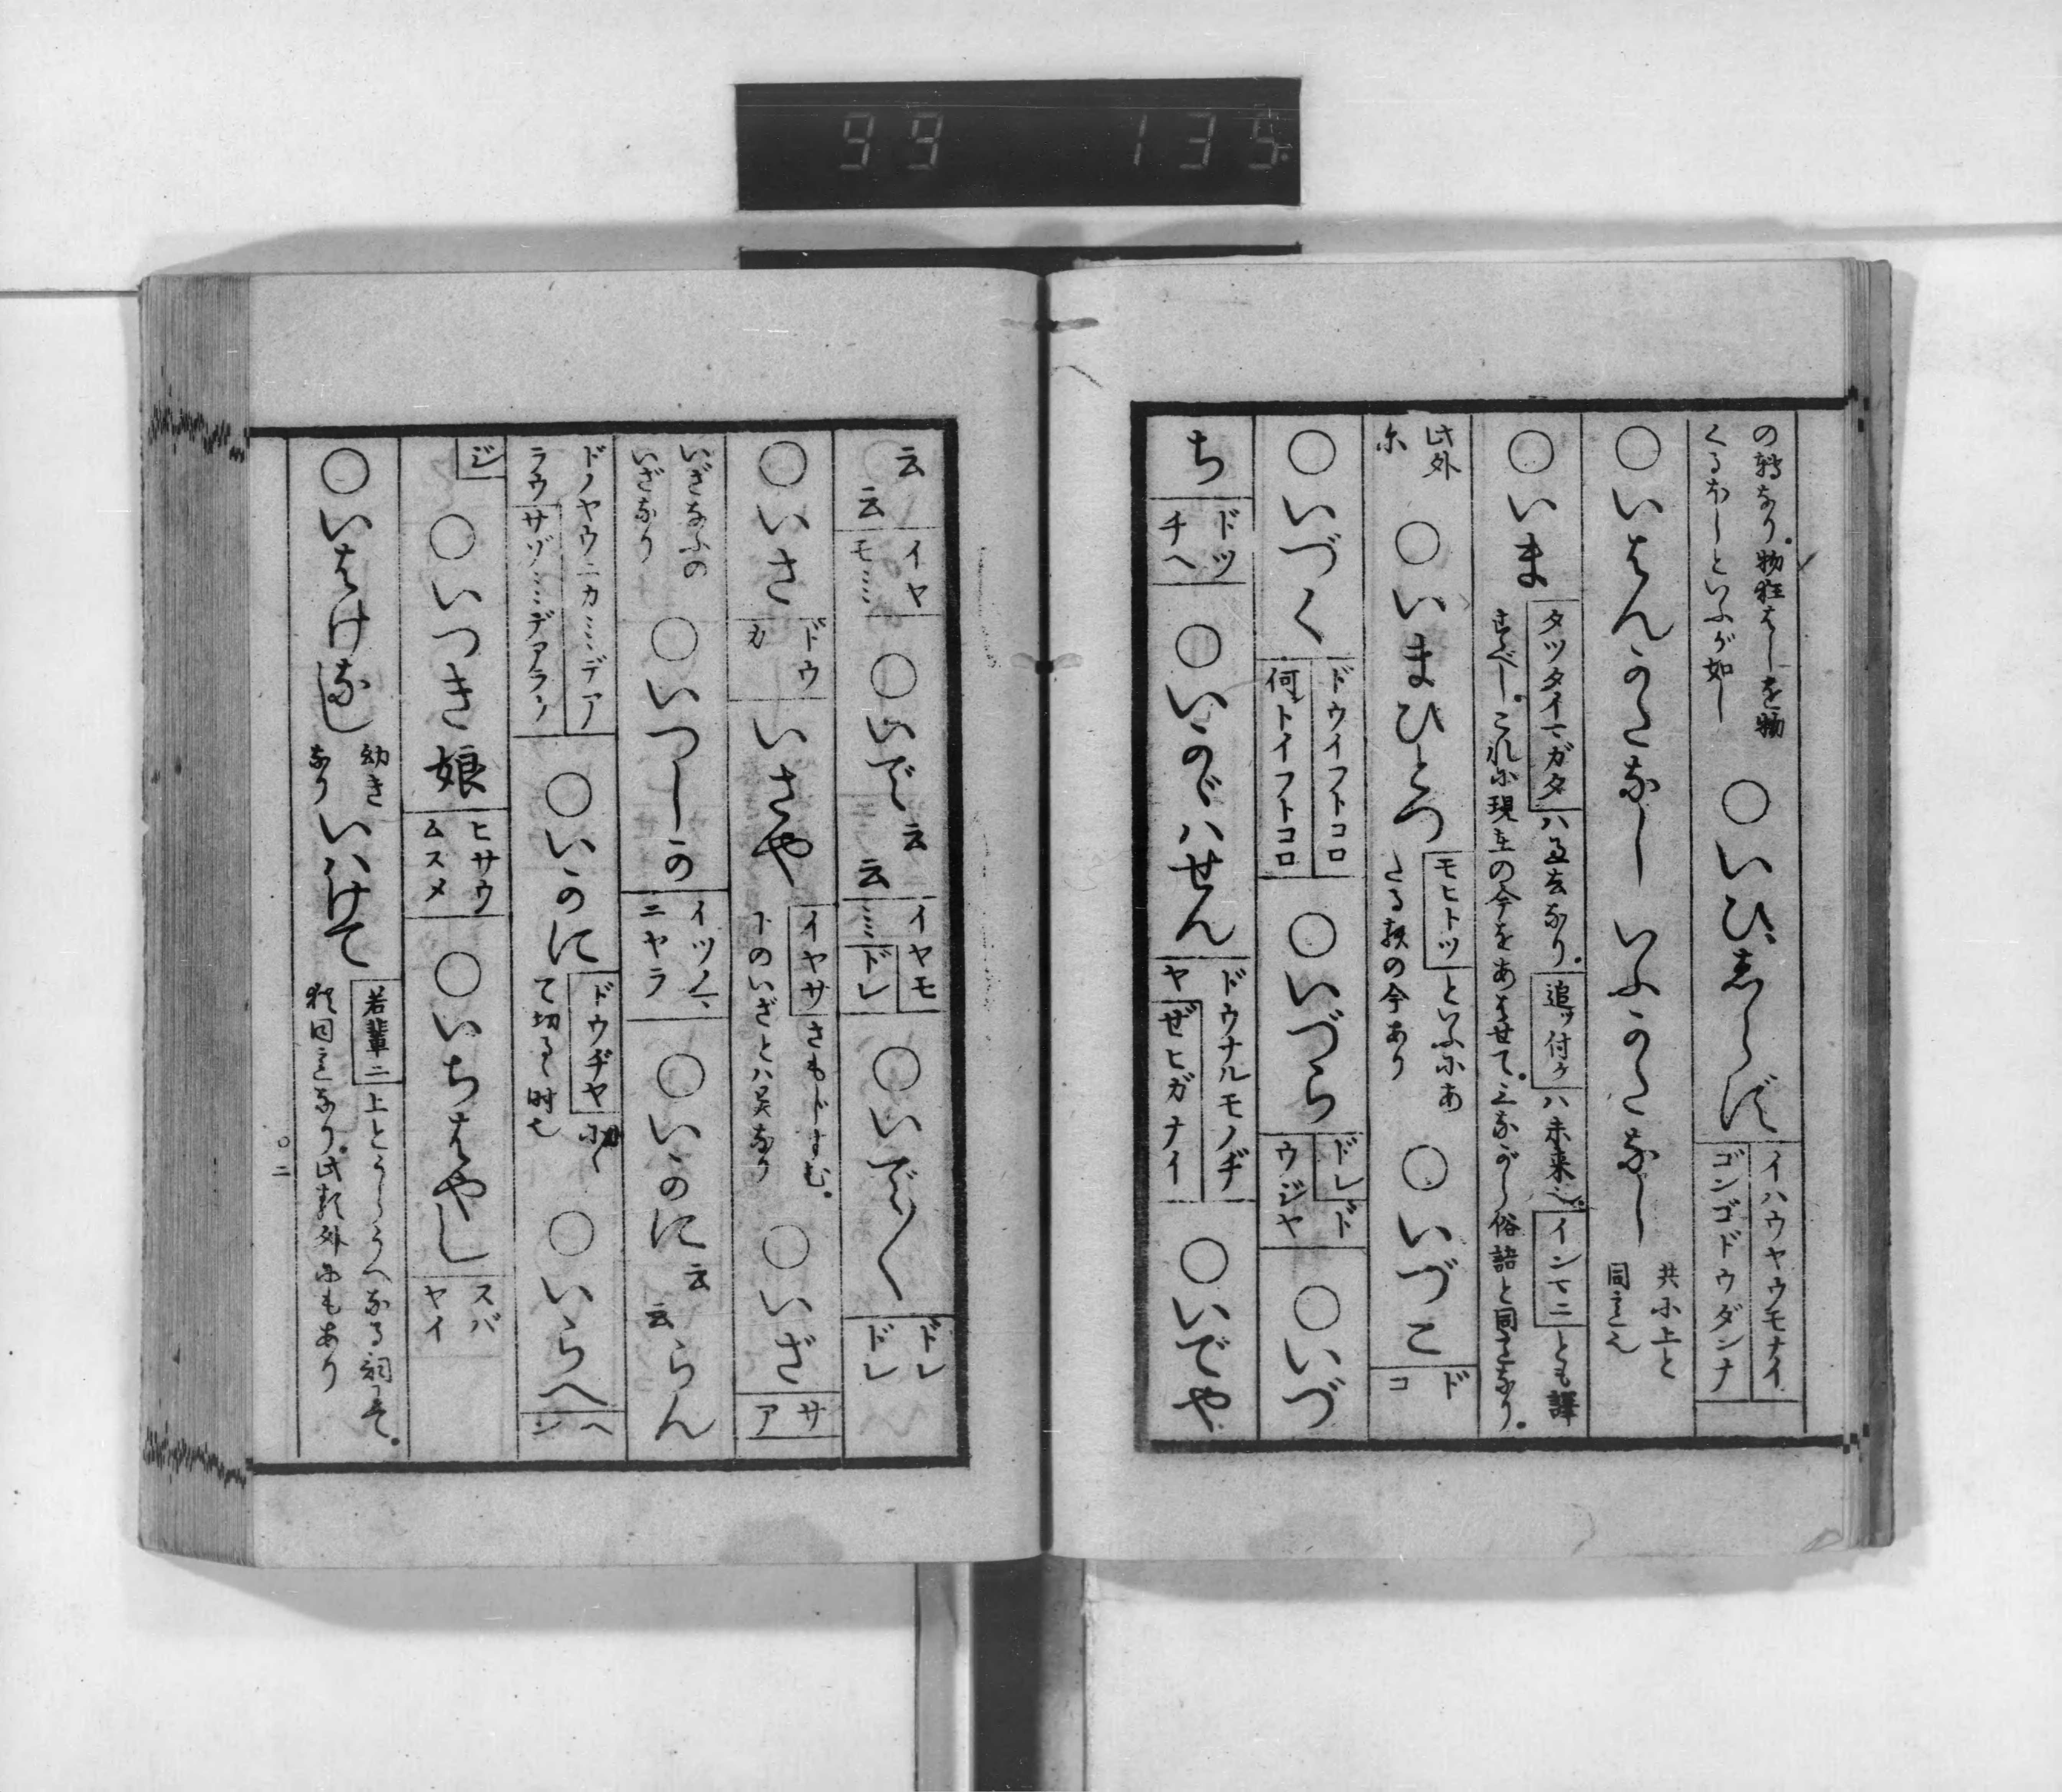 99 135
の轉なり。物狂はしを物
くるほしといふが如し
○いひしらず
イハウヤウモナイ
ゴンゴドウダンナ
○いはんかたなし いふかたなし
共に上と
同じ
○いま
タツタイマガタ ハ過去なり。追ッ付ケ ハ未来也。インマニ とも譯
すべし。これに現在の今をあはせて。三ながら俗語と同じきなり。
此外
に
○いまひとつ
モヒトツ といふにあ
たる類の今あり
○いづこ
ド
コ
○いづく
ドウイフトコロ
何トイフトコロ
○いづら
ドレ ド
ウジヤ
○いづ
ち
ドツ
チヘ
○いかゞハせん
ドウナルモノヂ
ヤ ぜヒガナイ
○いでや
云
云
イヤ
モミミ
○いで
云
云
イヤモ
ミミ ドレ
○いで〳〵
ドレ
ドレ
○いさ
ドウ
カ
いさや
イヤサ さもよむ。
下のいざとハ異なり
○いざ
サ
ア
いざなふの
いざなり
○いつしか
イツノマ
ニヤラ
○いかに
云
云
らん
ドノヤウニカミミデア
ラウ サゾミミデアラウ
○いかに
ドウヂヤ
て切るゝ時也
○いらへ
ヘ
ン
ジ
○いつき娘
ヒサウ
ムスメ
○いちはやし
スバ
ヤイ
○いはけなし
幼き
なり
いハけて
若輩ニ 上とうらうへなる詞にて。
猶同意なり。此類外にもあり
○二